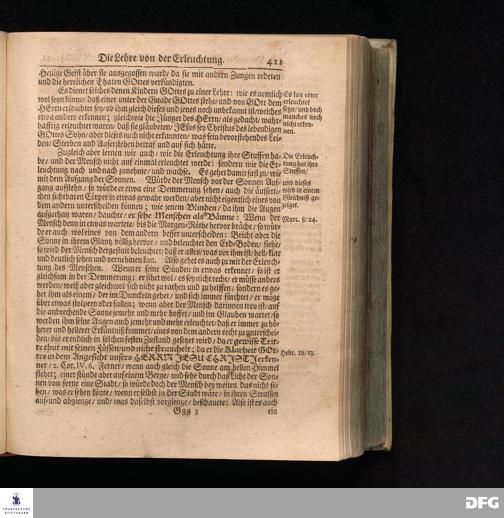 Die Lehre von der Erleuchtung. 421
Heilige Geist über sie ausgegossen ward/ da sie mit andern Zungen redeten
und die herrlichen Thaten GOttes verkündigten.
Es dienet solches denen Kindern GOttes zu einer Lehre: wie es nemlich
wol seyn könne/ daß einer unter der Gnade GOttes stehe/ und von GOtt dem
HErrn erleuchtet sey/ ob ihm gleich dieses und jenes noch unbekannt ist/ welches
etwa andere erkennen; gleichwie die Jünger des HErrn/ als gedacht/ wahr-
hafftig erleuchtet waren/ daß sie gläubeten/ JEsus sey Christus des lebendigen
GOttes Sohn/ aber dieses noch nicht erkannten/ was sein bevorstehendes Lei-
den/ Sterben und Auferstehen betraf und auf sich hätte.
Es kan einer
erleuchtet
seyn/ und doch
manches noch
nicht erken-
nen.
Zugleich aber lernen wir auch/ wie die Erleuchtung ihre Stuffen ha-
be/ und der Mensch nicht auf einmal erleuchtet werde: sondern wie die Er-
leuchtung nach und nach zunehme/ und wachse. Es gehet damit fast zu/ wie
mit dem Aufgang der Sonnen. Würde der Mensch vor der Sonnen Auf-
gang aufstehen/ so würde er etwa eine Demmerung sehen/ auch die äusserli-
chen sichtbaren Cörper in etwas gewahr werden/ aber nicht eigentlich eines von
dem andern unterscheiden können; wie jenem Blinden/ da ihm die Augen
aufgethan waren/ dauchte/ er sehe Menschen als Bäume: Wenn der
Mensch denn in etwas wartete/ bis die Morgen-Röthe hervor bräche/ so wür-
de er auch wol eines von dem andern besser unterscheiden: Bricht aber die
Sonne in ihrem Glantz völlig hervor/ und beleuchtet den Erd-Boden/ siehe/
so wird der Mensch dergestalt beleuchtet/ daß er alles/ was vor ihm ist/ hell/ klar
und deutlich sehen und vernehmen kan. Also gehet es auch zu mit der Erleuch-
tung des Menschen. Wenn er seine Sünden in etwas erkennet/ so ist er
gleichsam in der Demmerung; er sihet wol/ es sey nicht recht/ er müsse anders
werden/ weiß aber gleichwol sich nicht zu rathen und zu helffen/ sondern es ge-
het ihm als einem/ der im Dunckeln gehet/ und sich immer fürchtet/ er möge
über etwas stolpern oder fallen; wenn aber der Mensch darinnen treu ist/ auf
die anbrechende Sonne je mehr und mehr hoffet/ und im Glauben wartet/ so
werden ihm seine Augen je mehr und mehr erleuchtet/ daß er immer zu hö-
herer und hellerer Erkäntniß kommet/ eines von dem andern recht zu unterschei-
den/ bis er endlich in solchen festen Zustand gesetzet wird/ da er gewisse Trit-
te thut mit seinen Füssen/ und nicht strauchelt; da er die Klarheit GOt-
tes in dem Angesicht unsers HERRN JESU CHRISTI erken-
net/ 2. Cor. IV. 6. Ferner/ wenn auch gleich die Sonne am hellen Himmel
stehet; einer stünde aber auf einem Berge/ und sehe durch das Licht der Son-
nen von ferne eine Stadt/ so würde doch der Mensch bey weiten das nicht se-
hen/ was er sehen könte/ wenn er selbst in der Stadt wäre/ in ihren Strassen
auf- und abgienge/ und/ was daselbst vorgienge/ beschauete: Also ist es auch
Die Erleuch-
tung hat ihre
Stuffen/
und dieses
wird in einem
Gleichniß ge-
zeiget.
Marc. 8/24.
Hebr. 12/13.
Ggg 3 ein
FRANCKESCHE
STIFTUNGEN
DFG